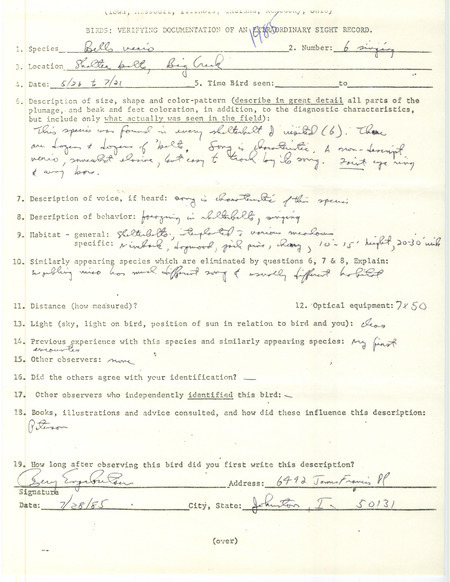 (Iowa, Missouri, Illinois, Indiana, Kentucky, Ohio)
BIRDS: VERIFYING DOCUMENTATION OF AN EXTRAORDINARY SIGHT RECORD.
1985
1. Species Bells vireo 2. Number: 6 singing
3. Location Shelter belts, Big Creek
4. Date: 5/26 to 7/21 5. Time Bird seen: to
6. Description of size, shape and color-pattern (describe in great detail all parts of the
plumage, and beak and feet coloration, in addition, to the diagnostic characteristics,
but include only what actually was seen in the field):
This species was found in every shelterbelt I visited (6). There
are dozens & dozens of belts. Song is characteristic. A non-descript
vireo, somewhat elusive, but easy to track by its song. Faint eye ring
& wing bars.
7. Description of voice, if heard: song is characteristic of this species
8. Description of behavior: foraging in shelterbelts, singing
9. Habitat - general: Shelterbelts, planted various
specific: Ninebark, Dogwood, pine, cherry, 10'-15' height, 20-30' wide
10. Similarly appearing species which are eliminated by questions 6, 7 & 8, Explain:
warbling vireo has much different song & usually different habitat
11. Distance (how measured)? 12. Optical equipment: 7x50
13. Light (sky, light on bird, position of sun in relation to bird and you): clear
14. Previous experience with this species and similarly appearing species: my first
encounter
15. Other observers: none
16. Did the others agree with your identification? —
17. Other observers who independently identified this bird: —
18. Books, illustrations and advice consulted, and how did these influence this description:
Peterson
19. How long after observing this bird did you first write this description?
Address: 6492 Pl
Signature
Date: 7/28/85 City, State: Johnston, Ia 50131
(over)